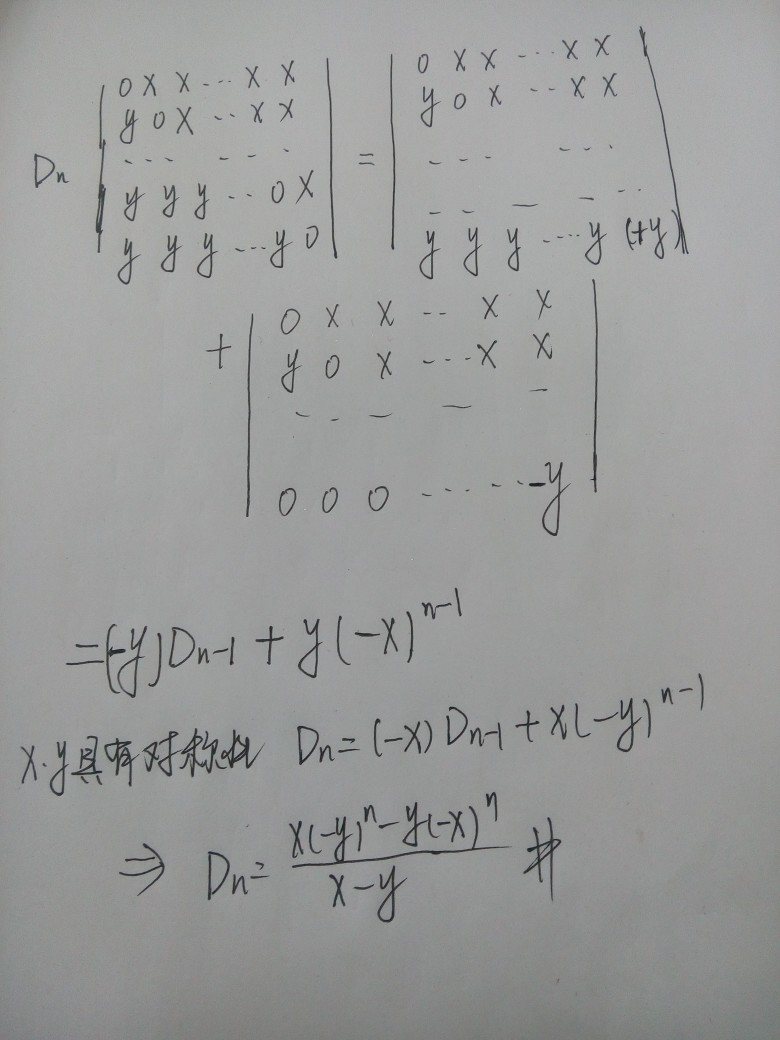 Dn | 0 x x ... x x | = | 0 x x ... x x |
| y 0 x .. x x | | y 0 x .. x x |
| ... ... | | ... ... |
| y y y .. 0 x | | - - - - .. |
| y y y ... y 0 | | y y y ... y (+y) |
+ | 0 x x .. x x |
| y 0 x ... x x |
| - - - - - |
| 0 0 0 ... ... -y |
=(-y)Dn-1 + y(-x)^n-1
x.y具有对称性 Dn=(-x)Dn-1+x(-y)^n-1
⇒ Dn= x(-y)^n-y(-x)^n / x-y #